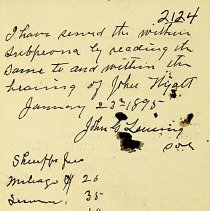 2124
I have served the within
Subpoena by reading the
Same to and within the
hearing of John Wyatt
January 23rd 1895
John C
Sheriffs fees
Mileage 20
35